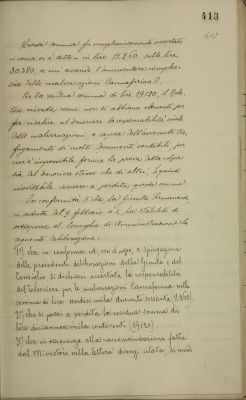 413
Questa somma fu complessivamente accertata
come si è detto in lire 11.260 sulle lire
30.380, a cui ascende l'ammontare comples-
sivo delle malversazioni Cannaferina.
Per la residua somma di lire 19120, il Rela-
tore ricorda come non si abbiano elementi per
far risalire al tesoriere la responsabilità civile
delle malversazioni, a causa dell'avvenuto tra-
fugamento di molti documenti contabili per
cui è impossibile fornire la prova della colpa
sia del tesoriere stesso che di altri; è quindi
inevitabile passare a perdita questa somma.
In conformità di che la Giunta Permanente
in seduta del 9 febbraio ha stabilito di
sottoporre al Consiglio di Amministrazione la
seguente deliberazione:
1°) che in conferma e, ove d'uopo, a spiegazione
delle precedenti deliberazioni della Giunta e del
Consiglio si dichiari accertata la responsabilità
del tesoriere per le malversazioni Cannaferina nella
somma di lire undici mila duecento sessanta (11.260).
2°) che si passi a perdita la residua somma di
lire diciannove mila centoventi (19120).
3°) che in osservanza alla raccomandazione fatta
dal Ministero nella lettera dianzi citata, si modi